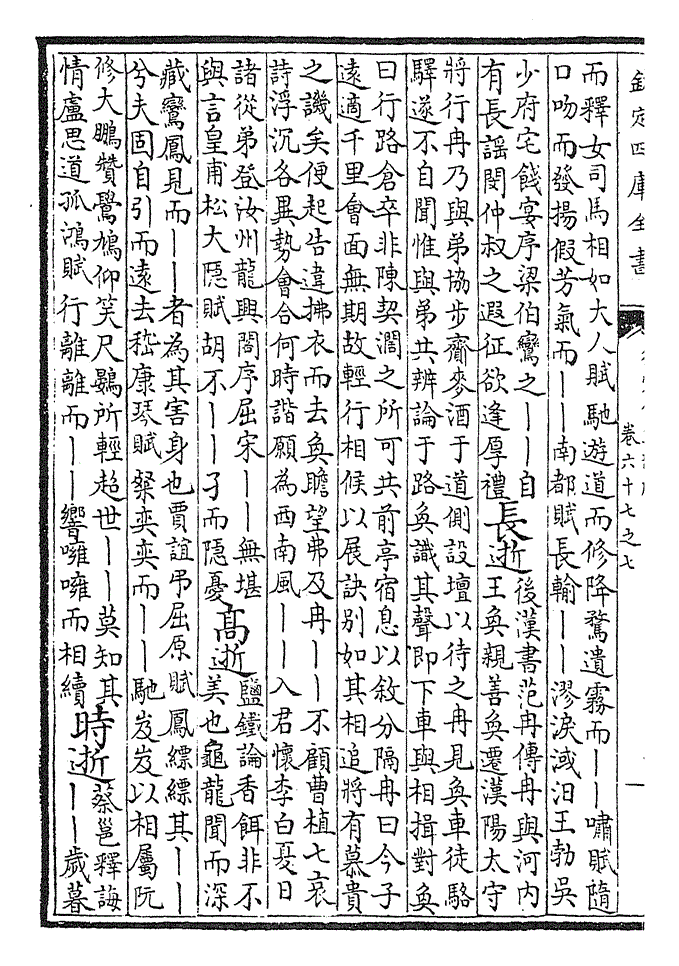 欽定四庫全書
卷六十七之七
而釋女司馬相如大人賦馳遊道而修降騖遺霧而丨丨嘯賦隨
口吻而發揚假芳氣而丨丨南都賦長輸丨丨漻淚淢汨王勃吳
少府宅餞宴序梁伯鸞之丨丨自
有長謡閔仲叔之遐征欲逢厚禮
長逝
後漢書范冉傳冉與河内
王奐親善奐遷漢陽太守
將行冉乃與弟協步齎麥酒于道側設壇以待之冉見奐車徒駱
驛遂不自聞惟與弟共辨論于路奐識其聲即下車與相揖對奐
曰行路倉卒非陳契濶之所可共前亭宿息以敘分隔冉曰今子
遠適千里會面無期故輕行相候以展訣别如其相追將有慕貴
之譏矣便起告違拂衣而去奐瞻望弗及冉丨丨不顧曹植七哀
詩浮沉各異勢會合何時諧願為西南風丨丨入君懷李白憂日
諸從弟登汝州龍興閣序屈宋丨丨無堪
與言皇甫松大隠賦胡不丨丨孑而隠憂
髙逝
鹽鐵論香餌非不
美也龜龍聞而深
藏鸞鳳見而丨丨者為其害身也賈誼弔屈原賦鳳縹縹其丨丨
兮夫固自引而遠去嵇康琴賦粲奕奕而丨丨馳岌岌以相屬阮
修大鵬贊鷽鳩仰笑尺鷃所輕超世丨丨莫知其
情盧思道孤鴻賦行離離而丨丨響噰噰而相續
時逝
蔡邕釋誨
丨丨歲暮